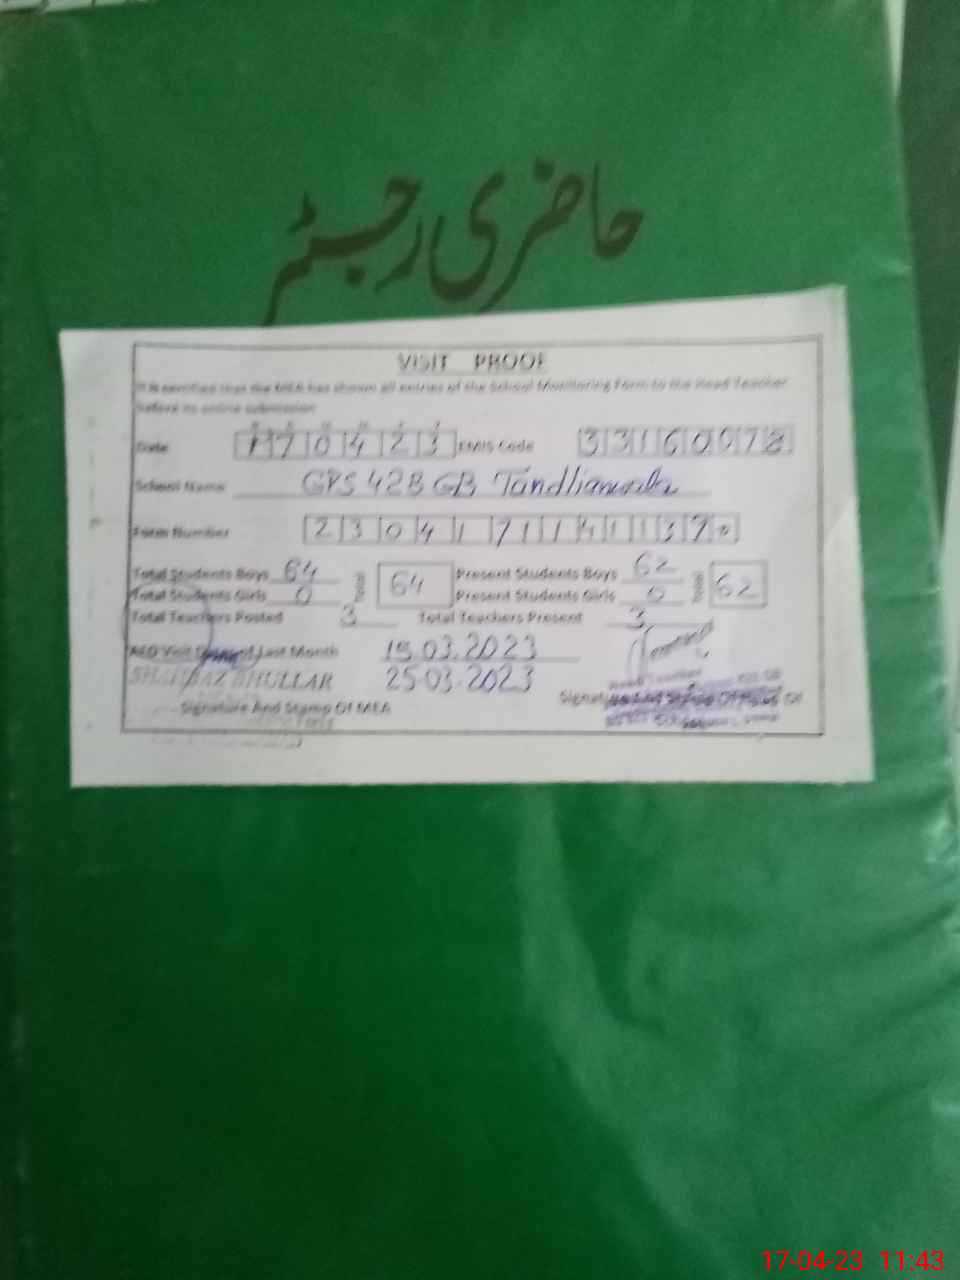 حاضری رجسٹر
VISIT PROOF
It is certified that the MEA has shown all entries of the School Monitoring Form to the Head Teacher
before its online submission
Date 170423 EMIS Code 33160078
School Name GPS 428 GB Tandlianwala
Form Number 2304171141137
Total Students Boys 64 Total 64 Present Students Boys 62 Total 62
Total Students Girls 0 Present Students Girls 0
Total Teachers Posted 3 Total Teachers Present 3
AEO Visit Date of Last Month 15.03.2023
SHAHBAZ BHULLAR 25.03.2023
Signature And Stamp Of MEA Signature And Stamp Of
17-04-23 11:43